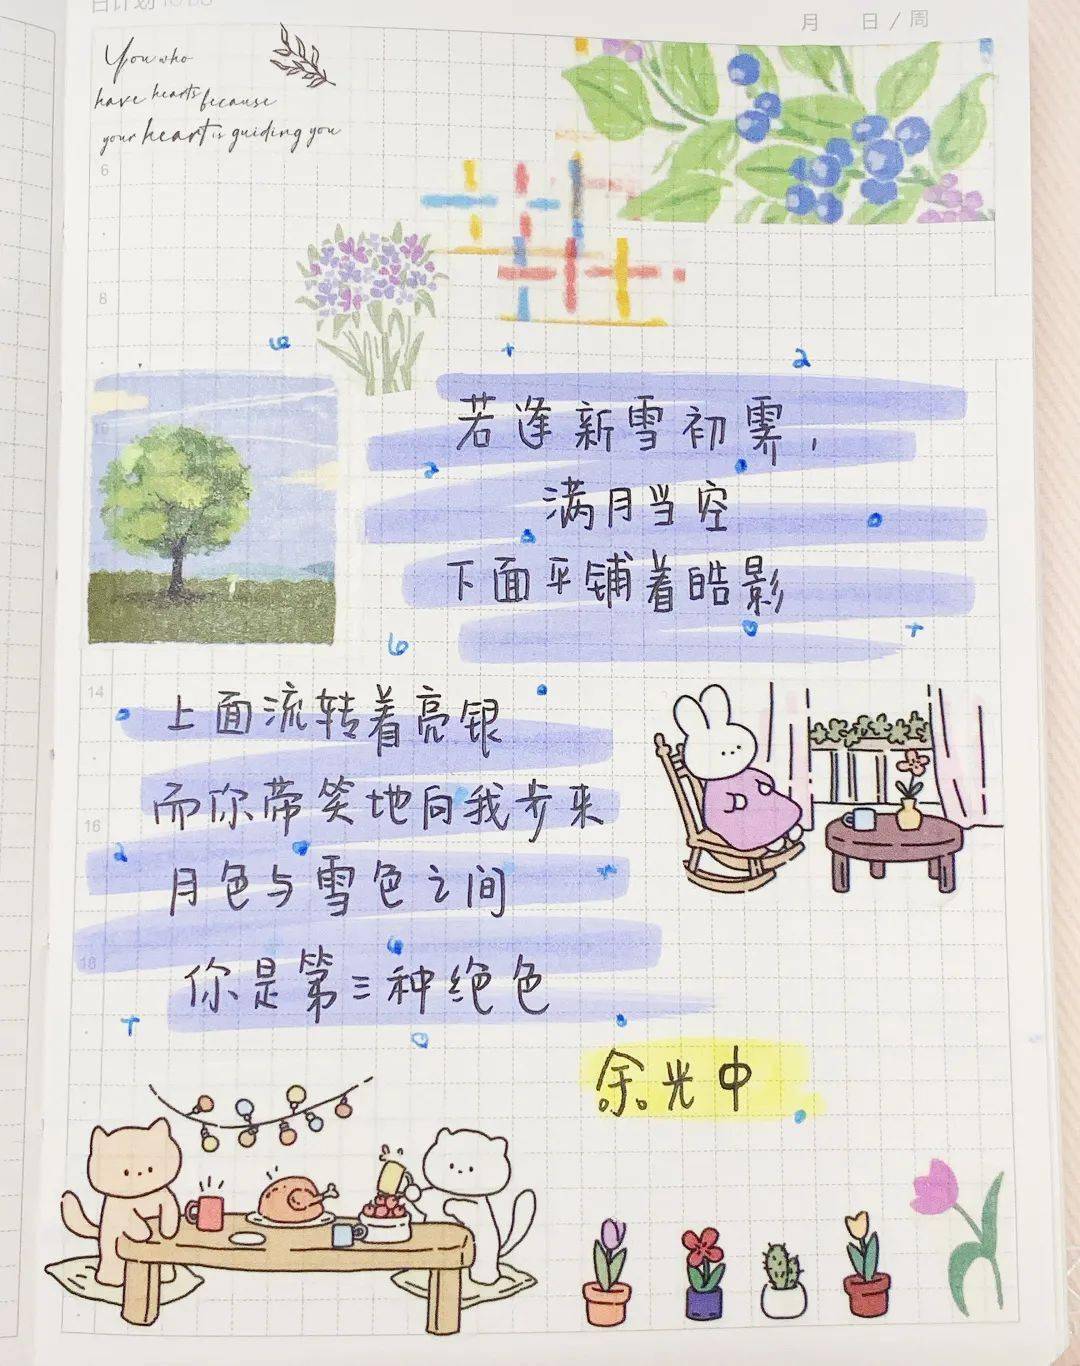 月 日/周
You who
have hearts because
your heart is guiding you
6
8
若逢新雪初霁，
满月当空
下面平铺着皓影
14
上面流转着亮银
而你带笑地向我步来
16
月色与雪色之间
18
你是第三种绝色
余光中